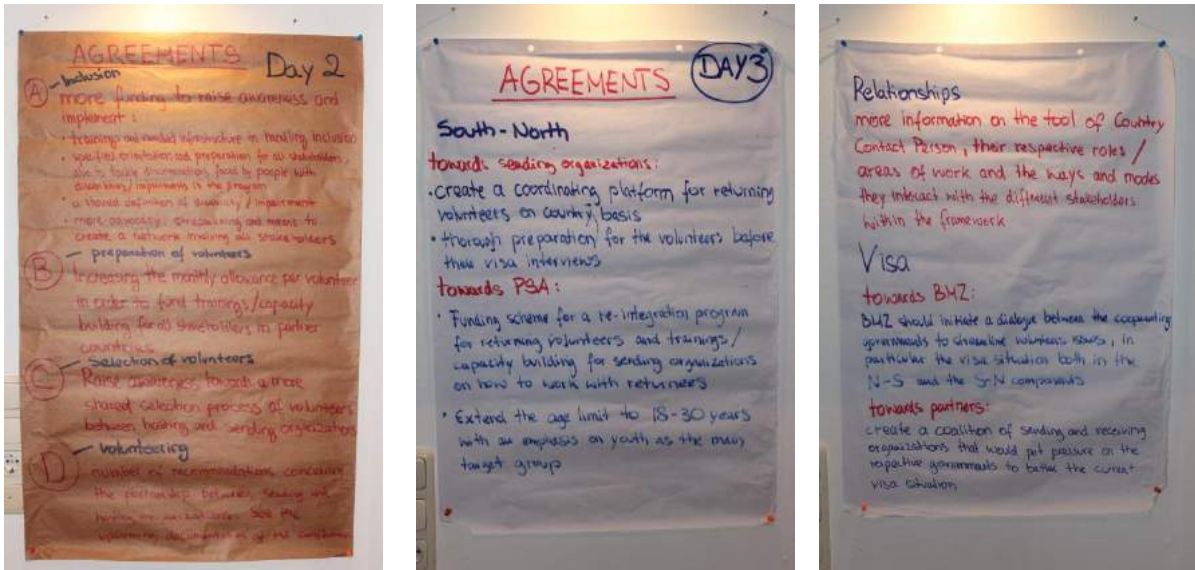 AGREEMENTS
Day 2
A Inclusion
more funding to raise awareness and
implement :
• trainings and needed infrastructure in handling inclusion
• specified orientation and preparation for all stakeholders,
also to tackle discrimination faced by people with
disabilities/impairments in the program
• a shared definition of disability/impairment
• more advocacy, streamlining and means to
create a network involving all stakeholders
B preparation of volunteers
Increasing the monthly allowance per volunteer
in order to fund trainings/capacity
building for all stakeholders in partner
countries
C Selection of volunteers
Raise awareness towards a more
shared selection process of volunteers
between hosting and sending organizations
D volunteering
number of recommendations concerning
the partnership between sending and
hosting organizations. See the
upcoming documentation of the conference
AGREEMENTS
DAY 3
South-North
towards sending organizations:
• create a coordinating platform for returning
volunteers on country basis
• thorough preparation for the volunteers before
their visa interviews
towards PSA:
• Funding scheme for a re-integration program
for returning volunteers and trainings/
capacity building for sending organizations
on how to work with returnees
• Extend the age limit to 18-30 years
with an emphasis on youth as the main
target group
Relationships
more information on the tool of Country
Contact Person, their respective roles/
areas of work and the ways and modes
they interact with the different stakeholders
within the framework
Visa
towards BMZ:
BMZ should initiate a dialogue between the cooperating
governments to streamline volunteers issues, in
particular the visa situation both in the
N-S and the S-N components
towards partners:
create a coalition of sending and receiving
organizations that would put pressure on the
respective governments to better the current
visa situation